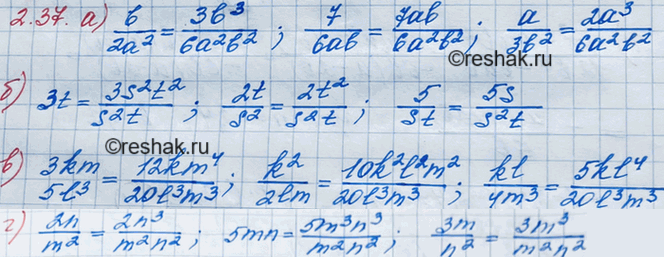 2.37. а) b/2a² = 3b³/6a²b² ; 7/6ab = 7ab/6a²b² ; a/3b² = 2a³/6a²b²
©reshak.ru
б) 3t = 3s²t²/s²t ; 2t/s² = 2t²/s²t ; 5/st = 5s/s²t
©reshak.ru
в) 3km/5l³ = 12km⁴/20l³m³ ; k²/2lm = 10k²l²m²/20l³m³ ; kl/4m³ = 5kl⁴/20l³m³
г) 2n/m² = 2n³/m²n² ; 5mn = 5m³n³/m²n² ; 3m/n² = 3m³/m²n²